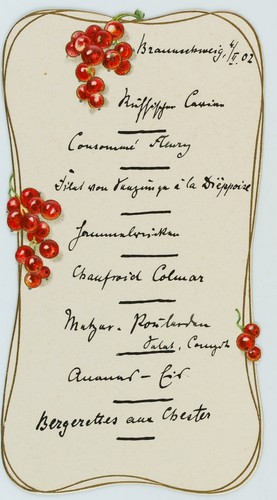 Braunschweig, 4/II. 02
Russischer Caviar
Consommé Fleury
Filet von Seezunge à la Dieppoise
Hammelrücken
Chaufroid Colmar
Metzer-Poularden
Salat, Compott
Ananas-Eis
Bergerettes aux Chester